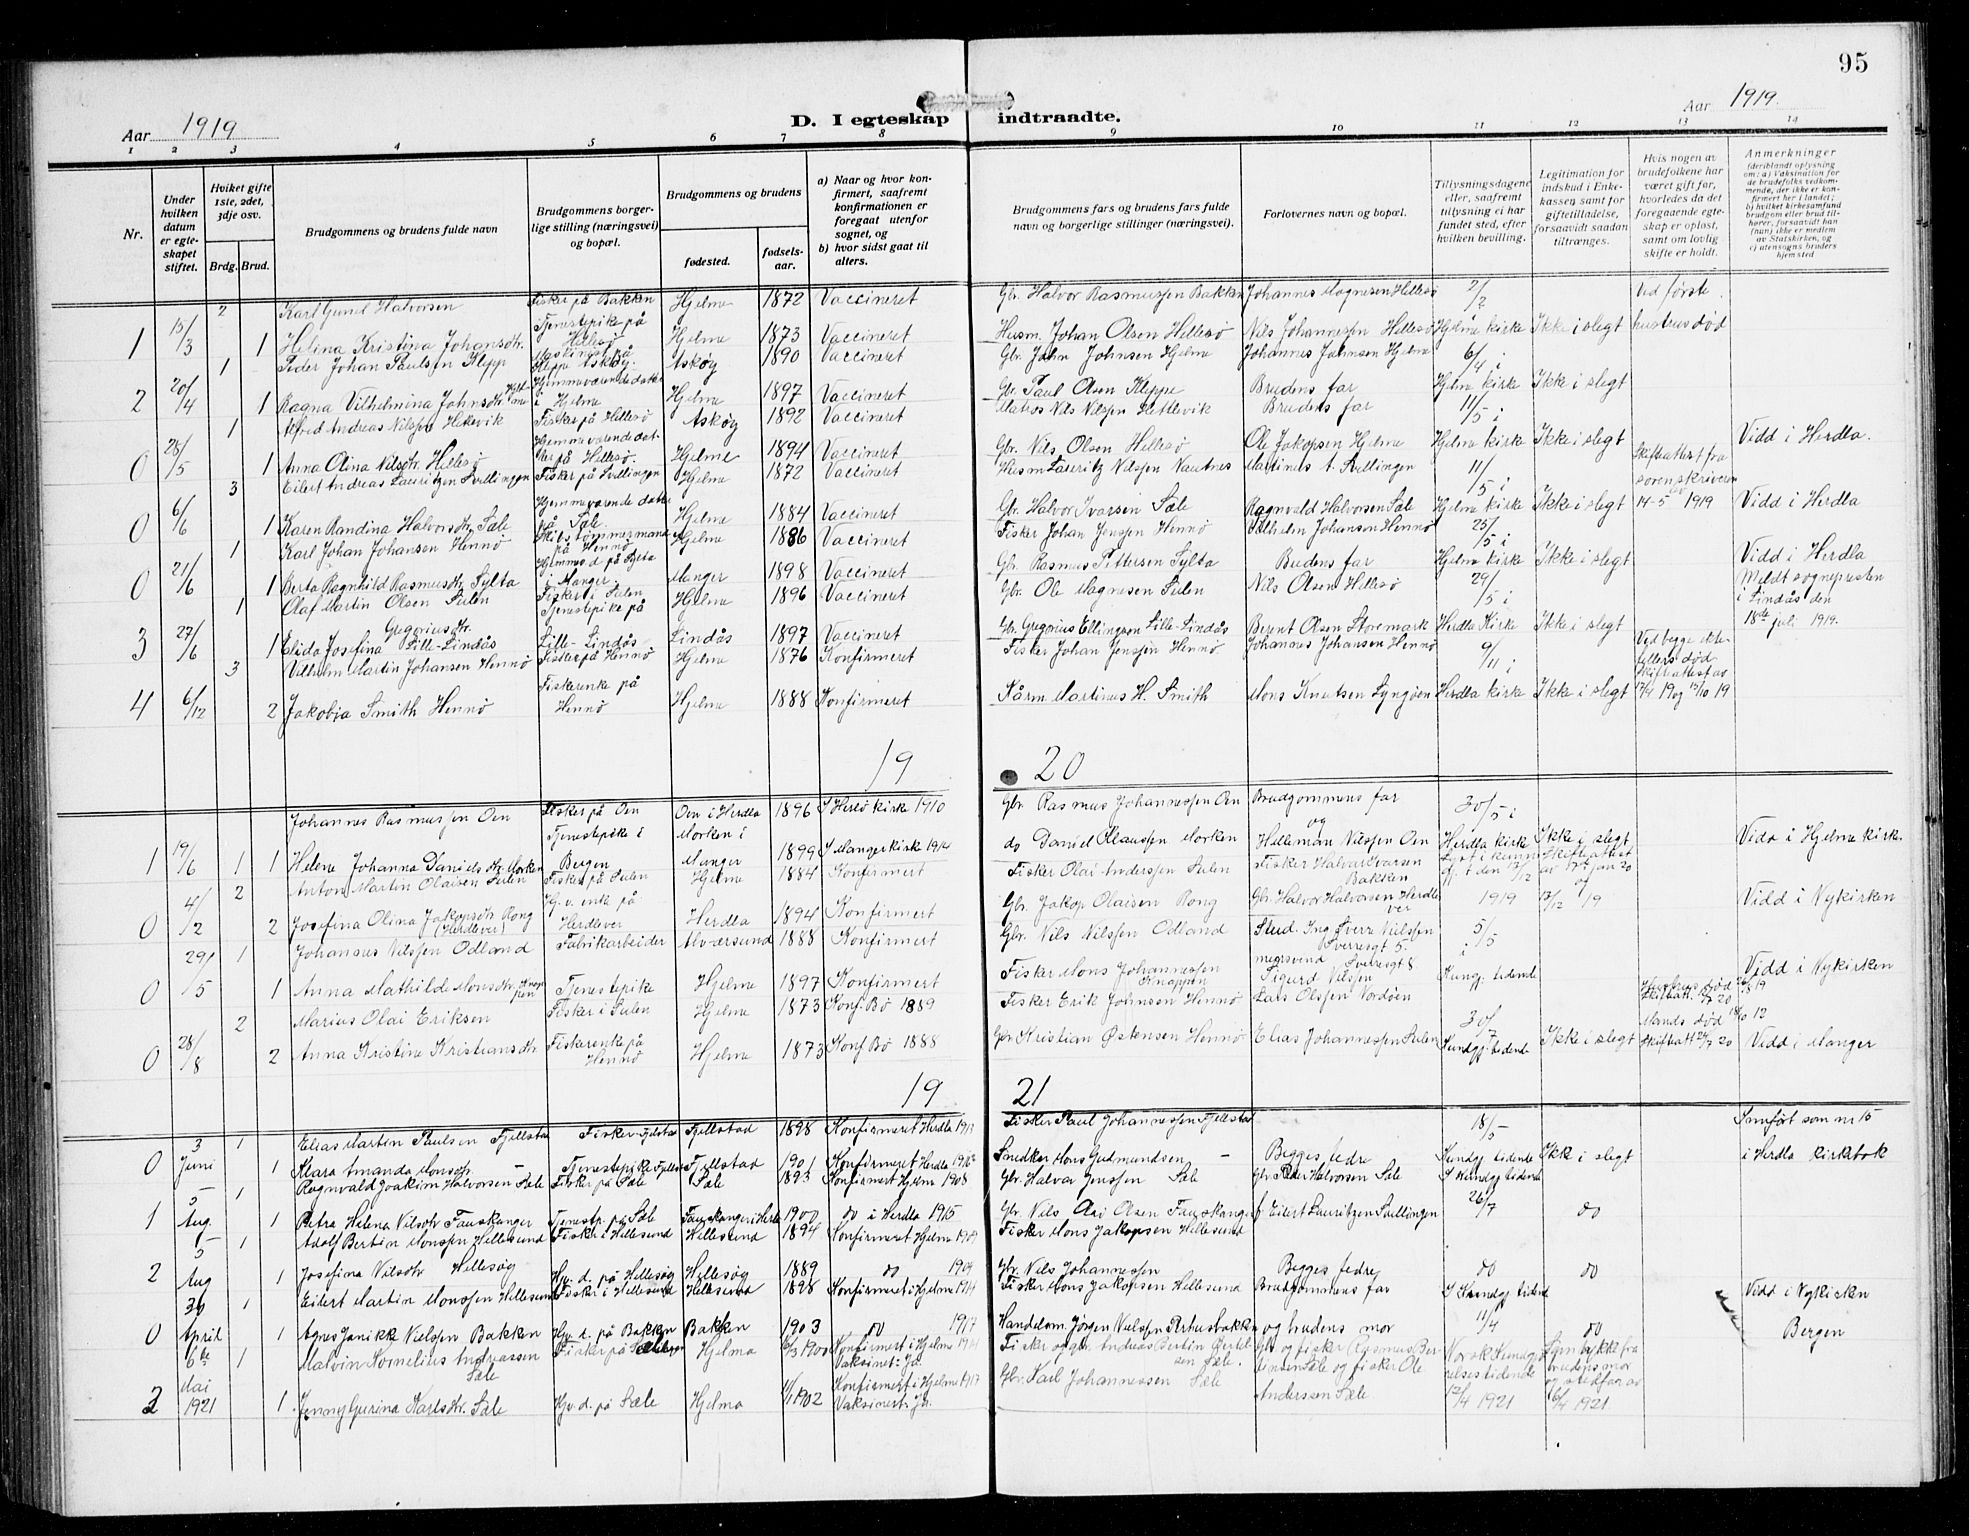 95
Aar 1919
D. I egteskap indtraadte.
Aar 1919.
1 2 3 4 5 6 7 8 9 10 11 12 13 14
Nr.
Under hvilken datum er egteskapet stiftet.
Hviket gifte 1ste, 2det, 3dje osv.
Brdg. Brud.
Brudgommens og brudens fulde navn
Brudgommens borgerlige stilling (næringsvei) og bopæl.
Brudgommens og brudens
fødested. fødselsaar.
a) Naar og hvor konfirmert, saafremt konfirmationen er foregaat utenfor sognet, og
b) hvor sidst gaat til alters.
Brudgommens fars og brudens fars fulde navn og borgerlige stillinger (næringsvei).
Forlovernes navn og bopæl.
Tillysningsdagene eller, saafremt tillysning ei har fundet sted, efter hvilken bevilling.
Legitimation for indskud i Enkekassen samt for giftetilladelse, forsaavidt saadan tiltrænges.
Hvis nogen av brudefolkene har været gift før, hvorledes da det foregaaende egteskap er opløst, samt om lovlig skifte er holdt.
Anmerkninger (deriblandt oplysning om: a) Vaksination for de brudefolks vedkommende, der ikke er konfirmert her i landet; b) hvilket kirkesamfund brudgom eller brud tilhører, forsaavidt han (hun) ikke er medlem av Statskirken, og c) utensogns bruders hjemsted
2 Karl Gunel Halvorsen Fisker på Bakken Hjelme 1872 Vaccineret Gbr. Halvor Rasmussen Bakken Johannes Magnesen Hellesø 2/2 Ved første
1 15/3 1 Helina Kristina Johansdtr. Tjenestepike på Hellesø Hjelme 1873 Vaccineret Husm. Johan Olsen Hellesø Nils Johannessen Hellesø Hjelme kirke Ikke i slegt hustrus død
1 Peder Johan Paulsen Klepp Kleppe Askøy. Askøy 1890 Vaccineret Gbr. John Johnsen Hjelme Johannes Johnsen Hjelme 6/4 i
2 20/4 1 Ragna Vilhelmina Johnsdtr. Hjelme Hjemmeværende datter i Hjelme Hjelme 1897 Vaccineret Gbr. Paul Olsen Kleppe Brudens far Hjelme kirke Ikke i slegt
1 Alfred Andreas Nilssen Hetlevik Fisker på Hellesø Askøy 1892 Vaccineret Matros Nils Nilssen Hetlevik Brudens far 11/5 i
0 28/5 1 Anna Olina Nilsdtr. Hellesø Hjemmeværende datter på Hellesø. Hjelme 1894 Vaccineret Gbr. Nils Olsen Hellesø Ole Jakopsen Hjelme Hjelme kirke Ikke i slegt Vidd i Herdla.
3 Eilert Andreas Lauritzen Svellingen Fisker på Svellingen Hjelme 1872 Vaccineret Husm Lauritz Nilssen Nautnes Martinus A. Svellingen 11/5 i Skifteattest fra sorenskriveren
0 6/6 1 Karen Randina Halvorsdtr. Sæle Hjemmeværende datter på Sæle. Hjelme 1884 Vaccineret Gbr. Halvor Ivarsen Sæle Ragnvald Halvorsen Sæle Hjelme kirke Ikke i slegt av 14-5 1919 Vidd i Herdla
1 Karl Johan Johansen Hennø tømmermand på Hennø Hjelme 1886 Vaccineret Fisker Johan Jenssen Hennø Vilhelm Johansen Hennø 25/5 i
0 21/6 1 Berta Ragnhild Rasmusdtr. Sylta Hjemmev. d. på Sylta i Manger Manger 1898 Vaccineret Gbr. Rasmus Pettersen Sylta Brudens far Hjelme kirke Ikke i slegt Vidd i Herdla
1 Olaf Martin Olsen Sulen Fisker i Sulen Hjelme 1896 Vaccineret Gbr. Ole Magnesen Sulen Nils Olsen Hellesø 29/5 i Meldt sognepresten i Lindås den 18de juli 1919.
3 27/6 1 Elida Josefina Gregoriusdtr. Lille-Lindås Tjenestepike på Lille-Lindås Lindås 1897 Vaccineret Gbr. Gregorius Ellingsen Lille-Lindås Berent Olsen Storemark Herdla Kirke Ikke i slegt
3 Vilhelm Martin Johansen Hennø Fisker på Hennø Hjelme 1876 Konfirmeret Fisker Johan Jenssen Hennø Johannes Johansen Hennø 9/11 i Ved begge ektefellers død
4 6/12 2 Jakobja Smith Hennø Fiskerenke på Hennø Hjelme 1888 Konfirmeret Kårm. Martinus H. Smith Mons Knutsen Lyngøen Herdla kirke Ikke i slegt Skifteattest av 12/4 19 og 15/10 19
19 20
Johannes Rasmussen Oen Fisker på Oen Oen i Herdla 1896 I Herlø kirke 1910 Gbr Rasmus Johannessen Oen Brudgommens far og 30/5 i
1 19/6 1 1 Helene Johanna Danielsdtr. Morken Tjenestepike i Bergen Morken i Manger 1899 I Manger kirke 1914 do Daniel Klaussen Morken Halleman Nilssen Oen Herdla kirke Ikke i slegt Vidd i Hjelme kirke.
2 Anton Martin Olaisen Sulen Fisker på Sulen Hjelme 1884 Konfirmert Fisker Olai Anderssen Sulen Fisker Halvar Ivarsen Bakken
0 4/2 2 Josefina Olina Jakopsdtr Rong (Herdlever) Hj. v. enk på Herdlever Herdla 1894 Konfirmert Gbr. Jakop Olaisen Rong Gbr. Halvor Halvorsen Herdlever 1919 13/12 19 Vidd i Nykirken
1 Johannes Nilssen Odland Fabrikarbeider Alværsund 1888 Konfirmert Gbr. Nils Nilssen Odland Stud. Ing. Sverr Nielssen Sverresgt 5. 5/5 i
0 29/5 1 Anna Mathilde Monsdtr. Knappen Tjenestepike Hjelme 1897 Konfirmert Fisker Mons Johannessen Knappen Sverresgt 8 Sigurd Nilssen Kungj. tidende Vidd i Nykirken
2 Marius Olai Eriksen Fisker i Sulen Hjelme 1873 Konf. Bø 1889 Fisker Erik Johnsen Hennø Lars Olssen Nordøen 30/7
0 28/8 2 Anna Kristine Kristiansdtr Fiskerenke på Hennø Hjelme 1873 Konf Bø 1888 Gbr Kristian Østensen Hennø Elias Johannessen Sulen Kundgj. tidende Ikke i slegt Mands død Skifteatt 24/7 20 Vidd i Manger
19 21
3 1 Elias Martin Paulsen Fjellstad Fisker Fjellstad Fjellstad 1898 Konfirmeret Herdla Fisker Paul Johannessen Fjellstad 18/5 Innført som nr 15
0 Juni 1 Klara Amanda Monsdtr. Tjenestepike Fjellst Fjellstad 1901 Konfirmeret Herdla Smedker Mons Gudmundsen Begges fedre Kundgj tidende Ikk i slegt i Herdla kirkebok
5 1 Ragnvald Joakim Halvorsen Sæle Fisker på Sæle Sæle 1893 Konfirmert Hjelme 1908 Gbr. Halvar Jenssen Sæle Gbr Peder Halvorsen Sæle I Kundgj tidend
1 Aug. 1 Petra Helena Nilsdtr Fauskanger Tjenestp. på Sæle Fauskanger i Herdla 1900 do i Herdla 1915 Gbr. Nils Olsen Fauskanger f Eilert Lauritzen Svellingen 26/7 do
5 1 Adolf Bertin Monssen Hellesund Fisker i Hellesund Hellesund 1894 Konfirmeret Hjelme 1909 Fisker Mons Jakopsen Hellesund
2 Aug 1 Josefina Nilsdtr Hellesøy Hjv. d. på Hellesøy Hellesøy 1889 do 1904 Gbr. Nils Johannessen Begges fedre do do
30 1 Eilert Martin Monssen Hellesund Fisker i Hellesund Hellesund 1898 Konfirmert i Hjelme 1914 Fisker Mons Jakopsen Hellesund Brudgommens far I Kundgj tidend Vidd i Nykirken
0 April 1 Agnes Janikke Nielssen Bakken Hjv. d. på Bakken Bakken 1903 do 1917 Handelsm. Jörgen Nielssen Bakken og brudens mor 11/4 do Bergen
6te 1 Malvin Kornelius Andreassen Sæle Hjelma Konfirmert i Hjelme Vaksinert: Ja. Fisker og gbr. Andreas Bertin Bertelsen Sæle. Gbr og fisker Rasmus Bertinsen Sæle og fisker Ole Anderssen Sæle Norsk Kundgjörelsestidende
2 Mai 1921 1 Jenny Gurina Karlsdtr. Sæle Hjv. d. på Sæle Hjelma 1902 Konfirmert i Hjelme 1917 Vaksinert: Ja. Gbr. Karl Johannessen Sæle 12/4 1921 Samtykke fra brudens mor og stedfar av 6/4 1921